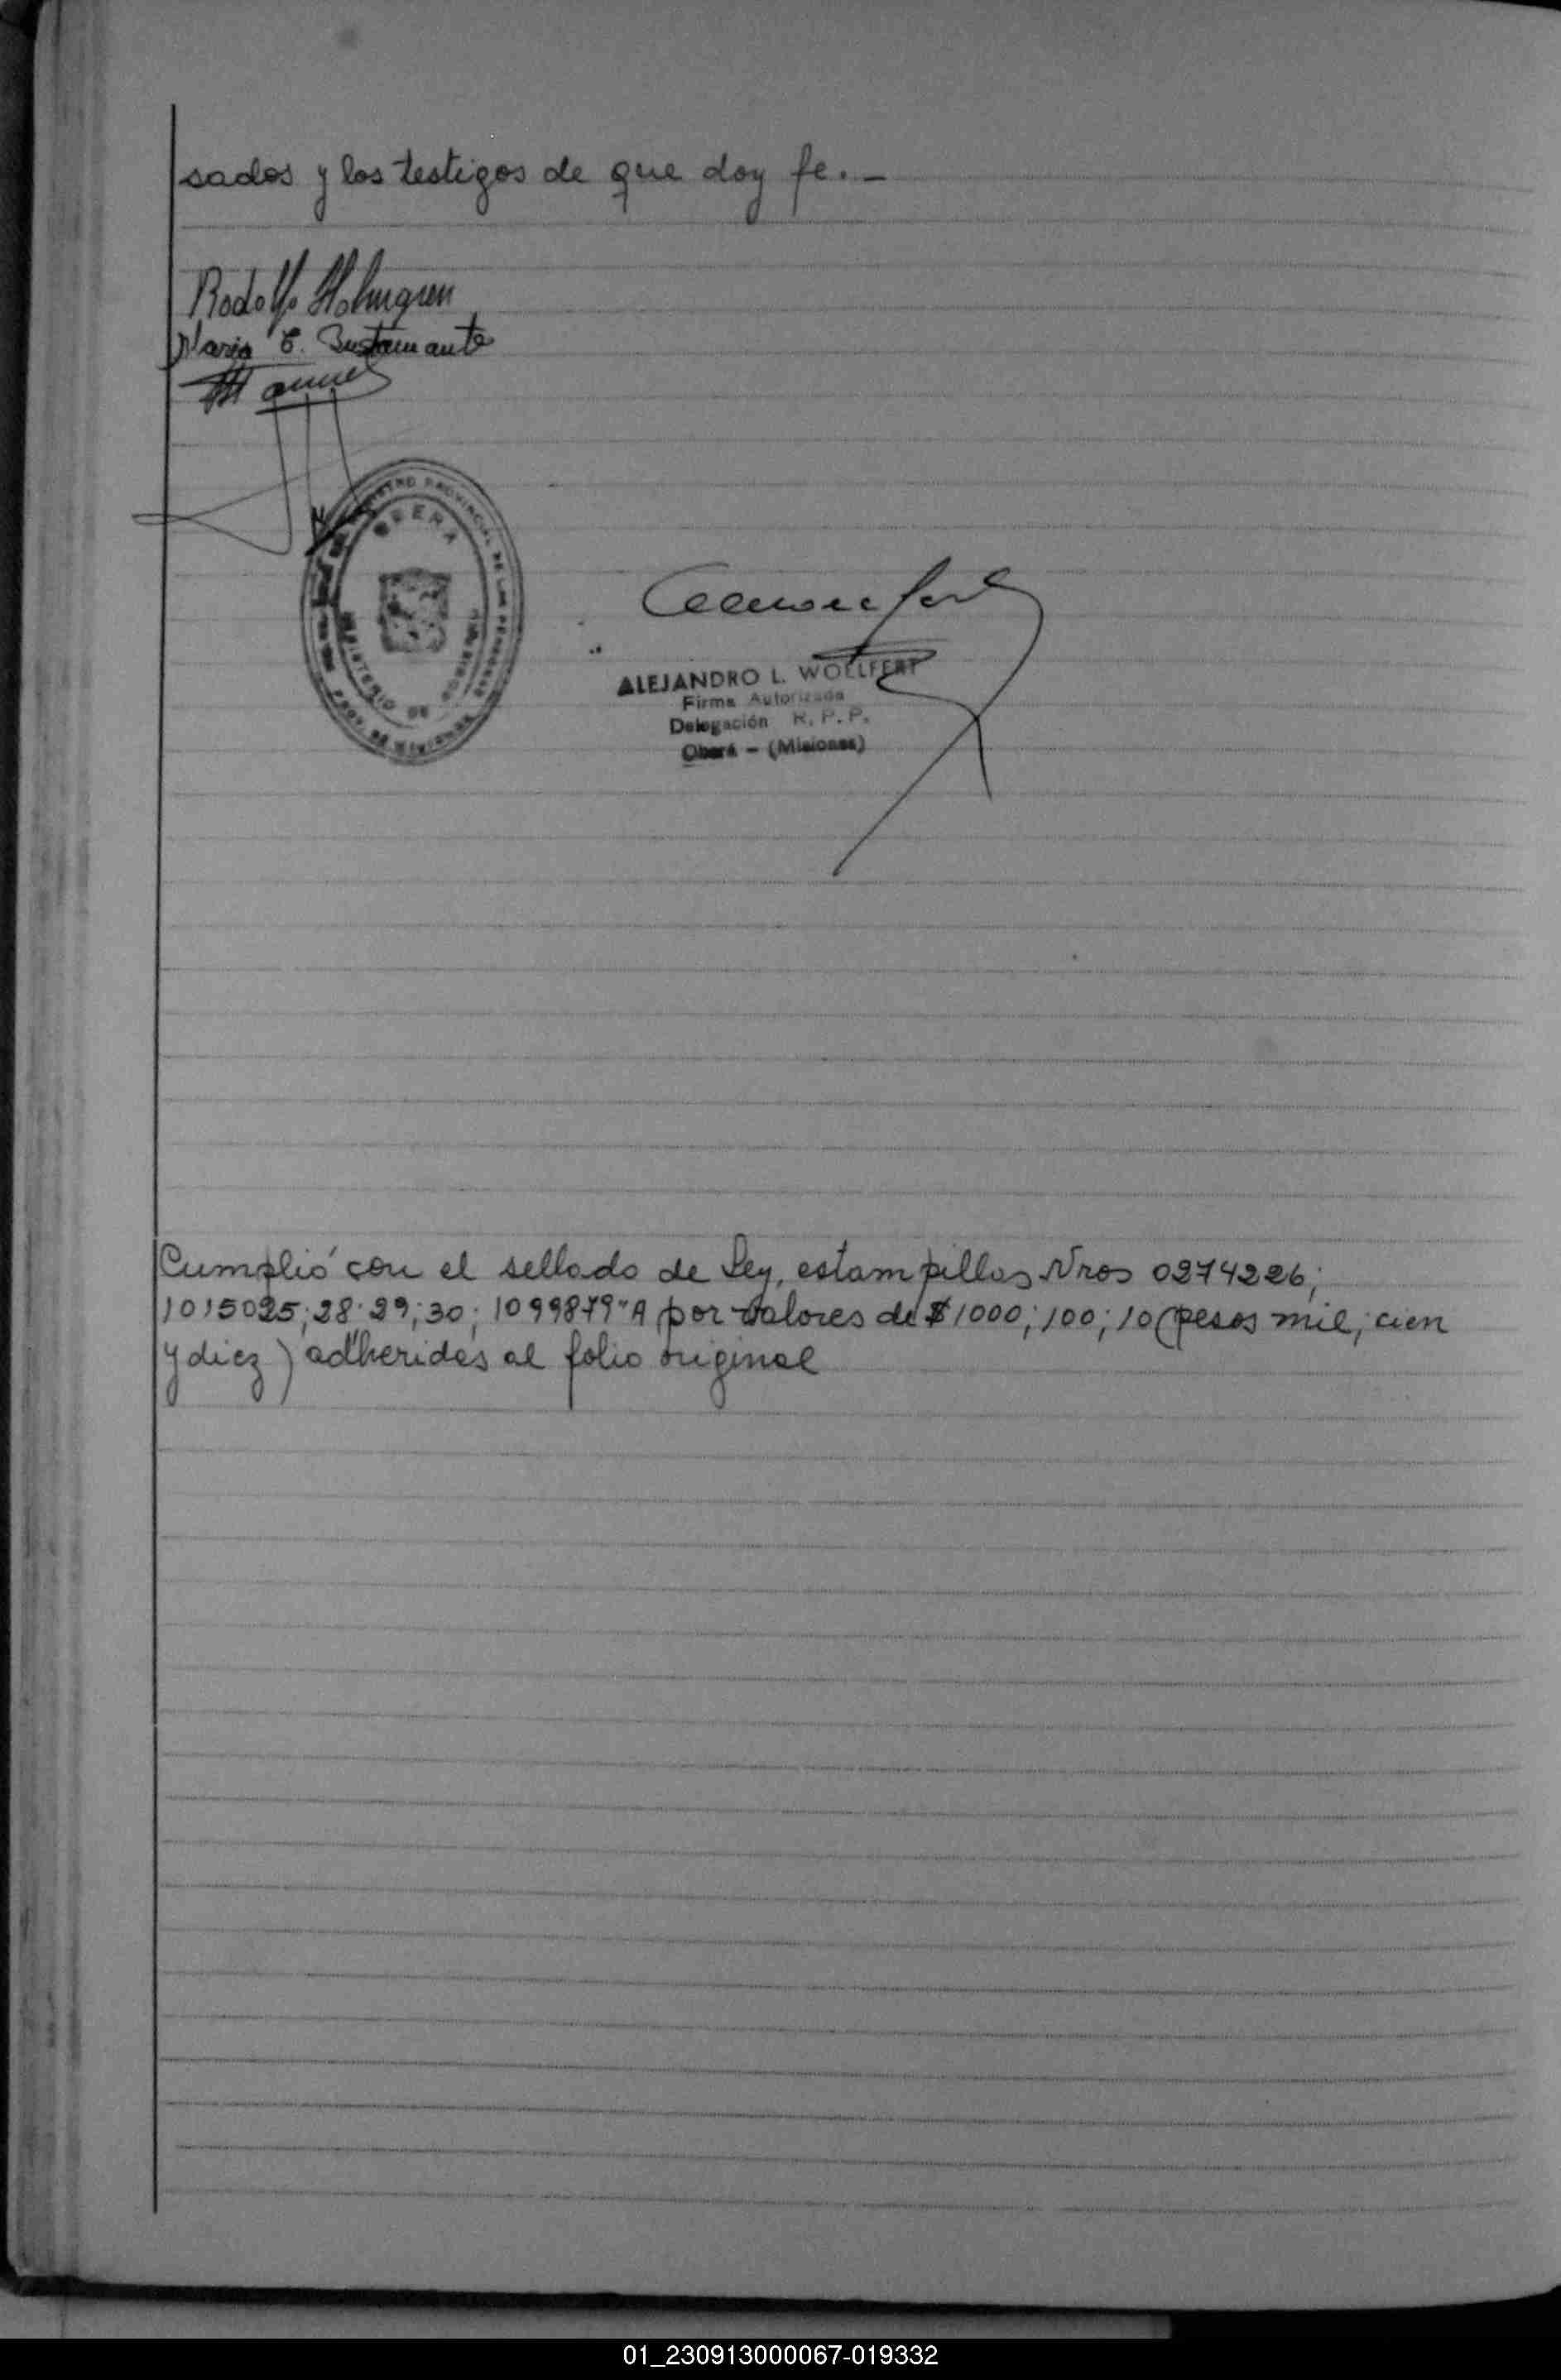 sados y los testigos de que doy fe. —
Rodolfo Holmgren
Maria E. Bustamante
REGISTRO PROVINCIAL DE LAS PERSONAS
OBERA
MINISTERIO DE GOBIERNO
PROV. DE MISIONES
ALEJANDRO L. WOLLFERT
Firma Autorizada
Delegación R. P. P.
Oberá - (Misiones)
Cumplió con el sellado de Ley, estampillas Nros 0274226;
1015025; 28; 29; 30; 1099879 "A" por valores de $ 1000; 100; 10 (pesos mil; cien
y diez) adheridas al folio original
01_230913000067-019332